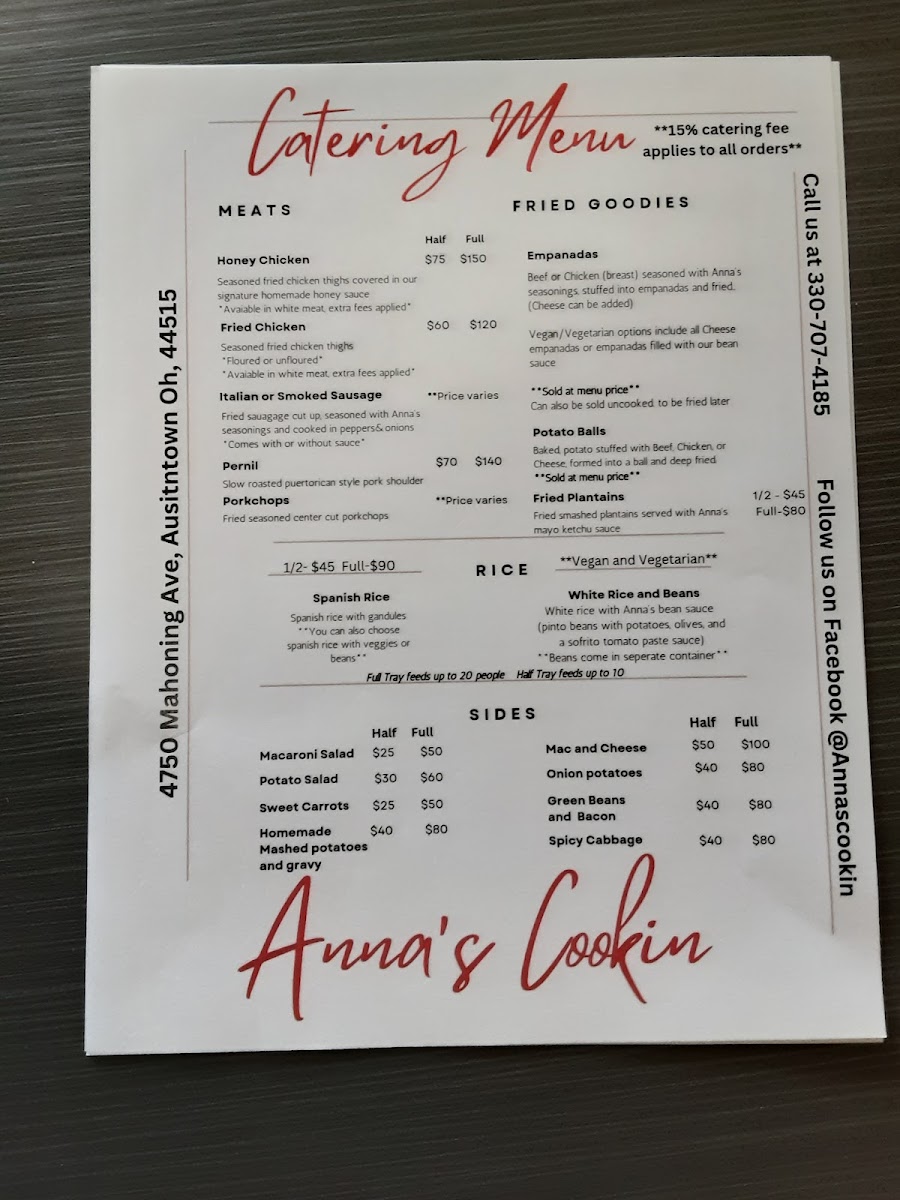 Catering Menu
**15% catering fee
applies to all orders**
MEATS
Half Full
Honey Chicken $75 $150
Seasoned fried chicken thighs covered in our
signature homemade honey sauce
*Avaiable in white meat, extra fees applied*
Fried Chicken $60 $120
Seasoned fried chicken thighs
*Floured or unfloured*
*Avaiable in white meat, extra fees applied*
Italian or Smoked Sausage **Price varies
Fried sauagage cut up, seasoned with Anna's
seasonings and cooked in peppers& onions
*Comes with or without sauce*
Pernil $70 $140
Slow roasted puertorican style pork shoulder
Porkchops **Price varies
Fried seasoned center cut porkchops
FRIED GOODIES
Empanadas
Beef or Chicken (breast) seasoned with Anna's
seasonings, stuffed into empanadas and fried.
(Cheese can be added)
Vegan/Vegetarian options include all Cheese
empanadas or empanadas filled with our bean
sauce
**Sold at menu price**
Can also be sold uncooked, to be fried later
Potato Balls
Baked potato stuffed with Beef, Chicken, or
Cheese, formed into a ball and deep fried
**Sold at menu price**
Fried Plantains 1/2 - $45
Fried smashed plantains served with Anna's Full-$80
mayo ketchu sauce
1/2- $45 Full-$90 RICE **Vegan and Vegetarian**
Spanish Rice
Spanish rice with gandules
**You can also choose
spanish rice with veggies or
beans**
White Rice and Beans
White rice with Anna's bean sauce
(pinto beans with potatoes, olives, and
a sofrito tomato paste sauce)
**Beans come in seperate container**
Full Tray feeds up to 20 people Half Tray feeds up to 10
SIDES
Half Full
Macaroni Salad $25 $50
Potato Salad $30 $60
Sweet Carrots $25 $50
Homemade $40 $80
Mashed potatoes
and gravy
Half Full
Mac and Cheese $50 $100
Onion potatoes $40 $80
Green Beans $40 $80
and Bacon
Spicy Cabbage $40 $80
Anna's Cookin
4750 Mahoning Ave, Ausitntown Oh, 44515
Call us at 330-707-4185 Follow us on Facebook @Annascookin